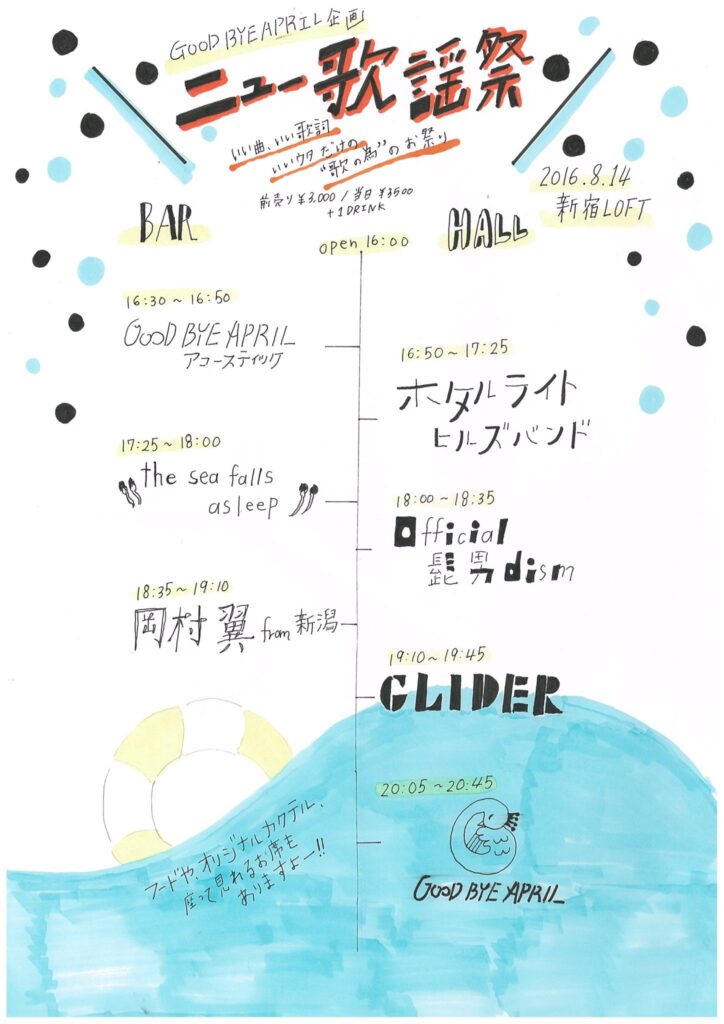 GOOD BYE APRIL 企画
ニュー歌謡祭
いい曲、いい歌詞
いいウタだけの
“歌の為”のお祭り
前売り¥3,000 / 当日¥3500
+1DRINK
2016.8.14
新宿LOFT
BAR
HALL
open 16:00
16:30〜16:50
GOOD BYE APRIL
アコースティック
16:50〜17:25
ホタルライト
ヒルズバンド
17:25〜18:00
the sea falls
asleep
18:00〜18:35
Official
髭男dism
18:35〜19:10
岡村翼 from 新潟
19:10〜19:45
GLIDER
20:05〜20:45
GOOD BYE APRIL
フードや、オリジナルカクテル、
座って見れるお席も
ありますよー!!